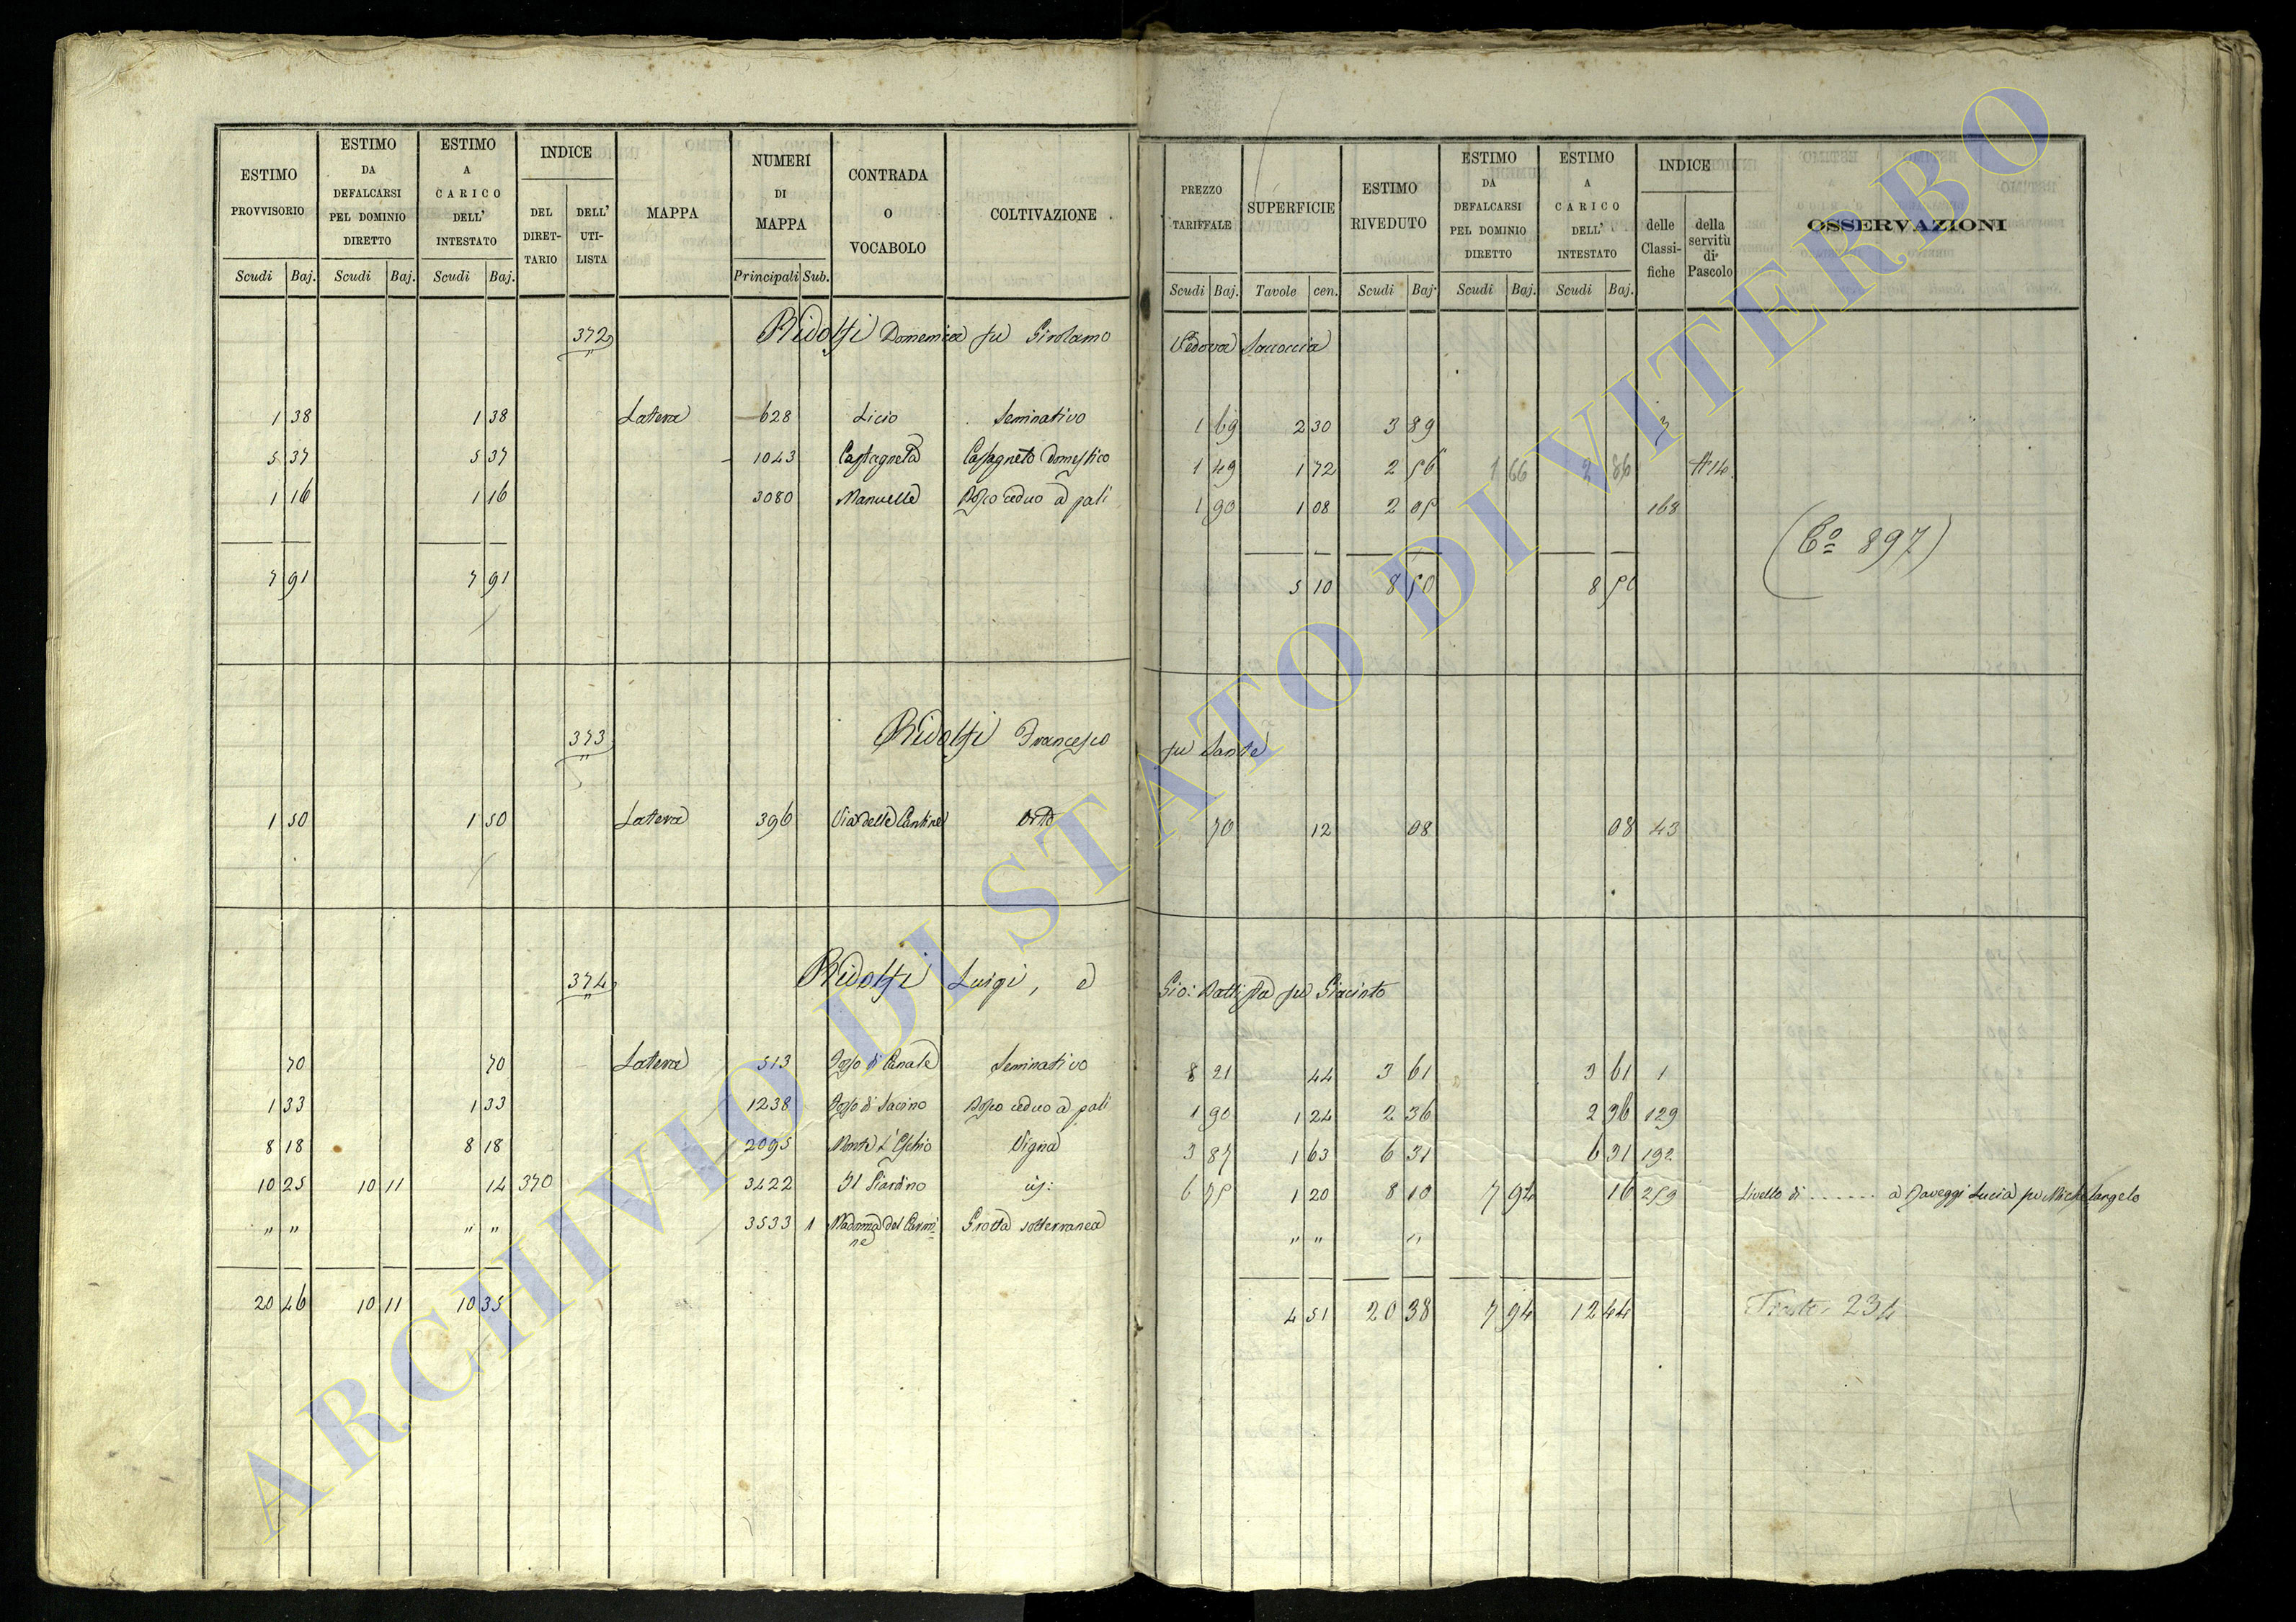 ESTIMO PROVVISORIO | ESTIMO DA DEFALCARSI PEL DOMINIO DIRETTO | ESTIMO A CARICO DELL' INTESTATO | INDICE | MAPPA | NUMERI DI MAPPA | CONTRADA O VOCABOLO | COLTIVAZIONE | PREZZO TARIFFALE | SUPERFICIE | ESTIMO RIVEDUTO | ESTIMO DA DEFALCARSI PEL DOMINIO DIRETTO | ESTIMO A CARICO DELL' INTESTATO | INDICE | OSSERVAZIONI
DEL DIRET-TARIO | DELL' UTI-LISTA | delle Classi-fiche | della servitù di Pascolo
Scudi Baj. | Scudi Baj. | Scudi Baj. | Principali Sub. | Scudi Baj. | Tavole cen. | Scudi Baj. | Scudi Baj. | Scudi Baj.
372 Ridolfi Domenica fu Girolamo Vedova Saccoccia
1 38 | 1 38 | Latera | 628 | Licio | Seminativo | 1 69 | 2 30 | 3 89 | 3
5 37 | 5 37 | 1043 | Castagneta | Castagneto domestico | 1 49 | 1 72 | 2 56 | 1 66
1 16 | 1 16 | 3080 | Manuelle | Bosco ceduo a pali | 1 90 | 1 08 | 2 05 | 168
(C.º 897)
7 91 | 7 91 | 5 10 | 8 50 | 8 50
373 Ridolfi Francesco fu Sante
1 50 | 1 50 | Latera | 396 | Via delle Cantine | Orto | 70 | 12 | 08 | 08 | 43
374 Ridolfi Luigi, e Gio: Battista fu Giacinto
70 | 70 | Latera | 513 | Fosso di Canale | Seminativo | 8 21 | 44 | 3 61 | 3 61 | 1
1 33 | 1 33 | 1238 | Fosso di Sacino | Bosco ceduo a pali | 1 90 | 1 24 | 2 36 | 2 36 | 129
8 18 | 8 18 | 2095 | Monte L'Eschio | Vigna | 3 87 | 1 63 | 6 31 | 6 31 | 192
10 25 | 10 11 | 14 | 370 | 3422 | Il Giardino | 6 75 | 1 20 | 8 10 | 7 94 | 16 | 259 | Livello di ........ a Faveggi Lucia fu Michelangelo
" " | " " | 3533 1 | Madonna del Carmine | Grotta sotterranea | " " | "
20 46 | 10 11 | 10 35 | 4 51 | 20 38 | 7 94 | 12 44 | 234
ARCHIVIO DI STATO DI VITERBO